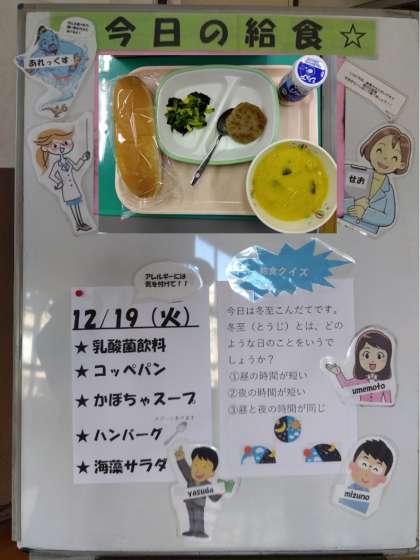 今日の給食☆
あれっくす
せお
アレルギーには
気を付けて！！
12/19（火）
★乳酸菌飲料
★コッペパン
★かぼちゃスープ
★ハンバーグ
★海藻サラダ
yasuda
給食クイズ
今日は冬至こんだてです。
冬至（とうじ）とは、どの
ような日のことをいうで
しょうか？
①昼の時間が短い
②夜の時間が短い
③昼と夜の時間が同じ
umemoto
mizuno